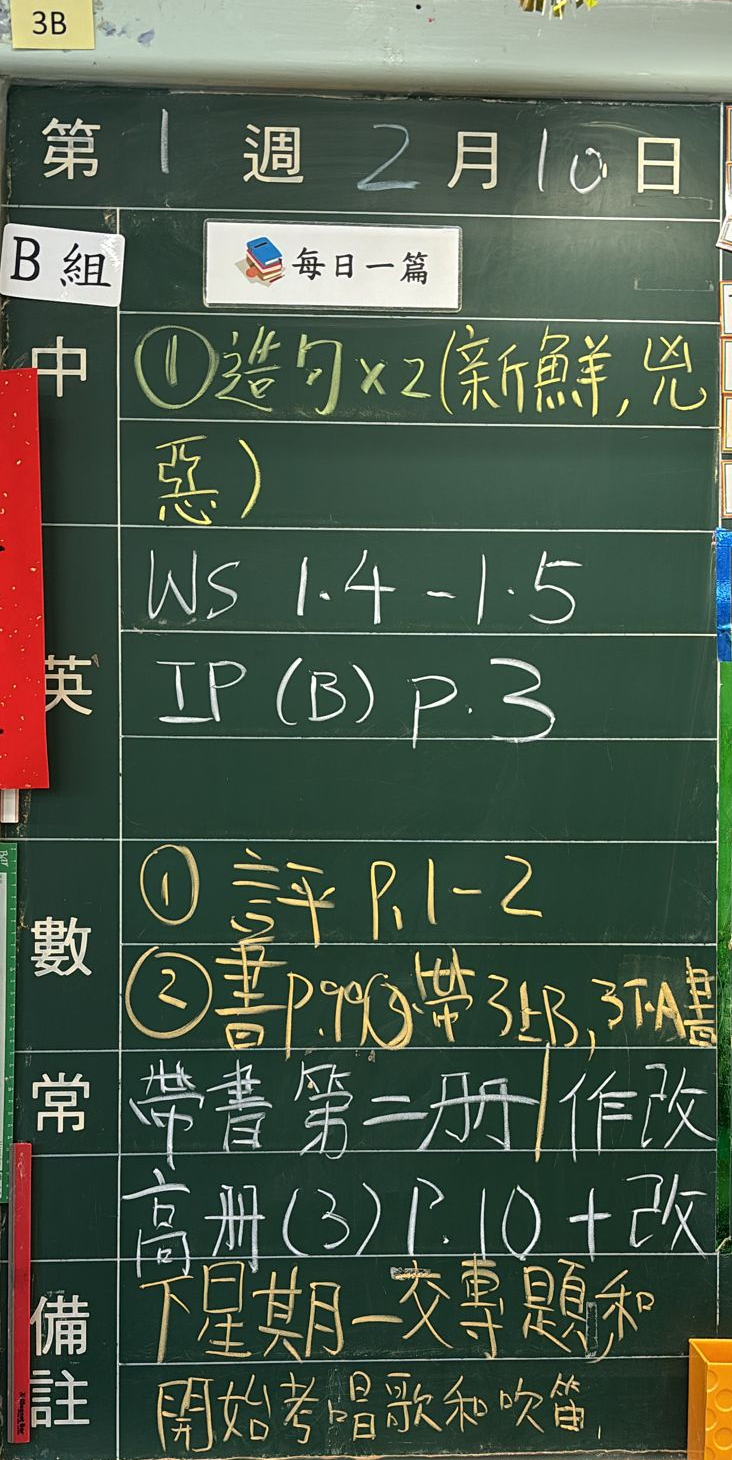 3B
第 1 週 2 月 10 日
B 組
每日一篇
中
①造句x2(新鮮,兇
惡)
英
WS 1.4 - 1.5
IP (B) p.3
數
① 評 P.1-2
②書P.99③帶3上B,3下A書
常
帶書第二冊|作改
高冊(3) P.10 + 改
備註
下星期一交專題和
開始考唱歌和吹笛.